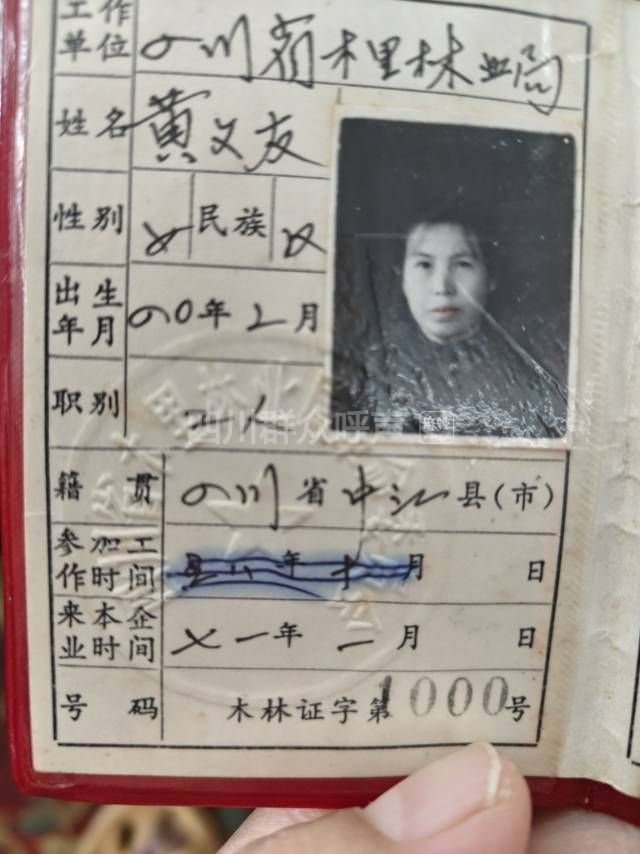 工作单位 四川省木里林业局
姓名 黄文友
性别 女 民族 汉
出生年月 四0年二月
职别 工人
籍贯 四川省中江县(市)
参加工作时间 年十 月 日
来本企业时间 七一年一月 日
号码 木林证字第1000号
四川群众呼声 麻辣